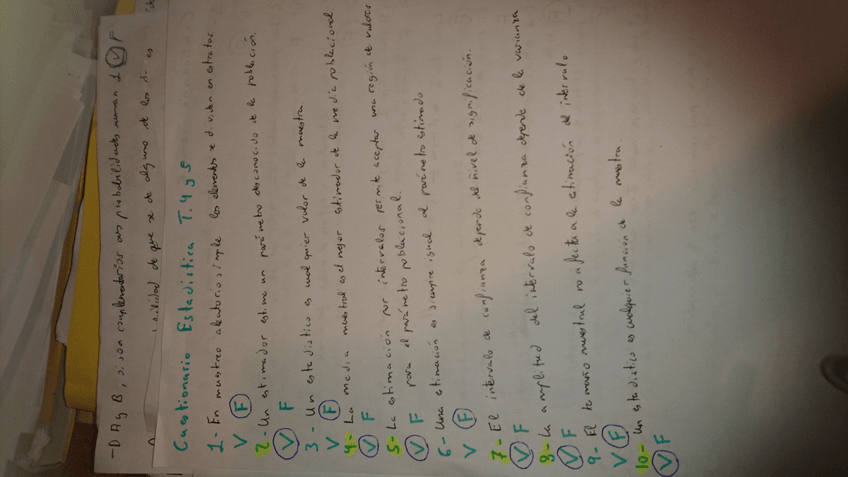 -D A y B, si son complementarios sus probabilidades suman 1 V F
probabilidad de que se de alguno de los dos es
Cuestionario Estadistica T.4 y 5
1- En muestreo aleatorio simple los elementos se dividen en estratos
V F
2- Un estimador estima un parámetro desconocido de la población.
V F
3- Un estadístico es cualquier valor de la muestra
V F
4- La media muestral es el mejor estimador de la media poblacional
V F
5- La estimación por intervalos permite aceptar una región de valores
V F para el parámetro poblacional.
6- Una estimación es siempre igual al parámetro estimado
V F
7- El intervalo de confianza depende del nivel de significación.
V F
8- La amplitud del intervalo de confianza depende de la varianza
V F
9- El tamaño muestral no afecta a la estimación del intervalo
V F
10- Un estadístico es cualquier función de la muestra.
V F